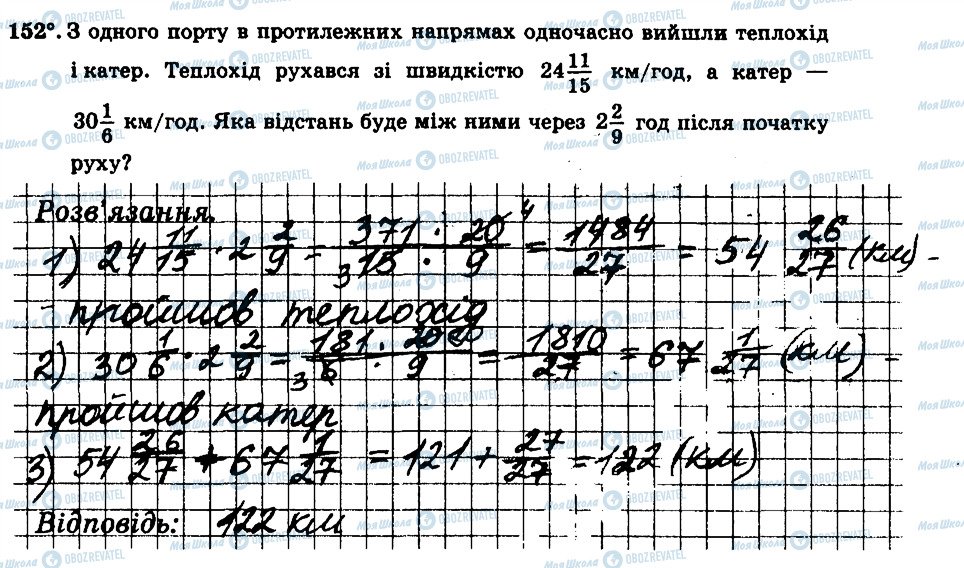 152°. З одного порту в протилежних напрямах одночасно вийшли теплохід
і катер. Теплохід рухався зі швидкістю 24 11/15 км/год, а катер —
30 1/6 км/год. Яка відстань буде між ними через 2 2/9 год після початку
руху?
Розв'язання.
1) 24 11/15 · 2 2/9 = 371 · 20 4 / 3 15 · 9 = 1484/27 = 54 26/27 (км) –
– пройшов теплохід
2) 30 1/6 · 2 2/9 = 181 · 20 10 / 3 6 · 9 = 1810/27 = 67 1/27 (км) –
пройшов катер
3) 54 26/27 + 67 1/27 = 121 + 27/27 = 122 (км)
Відповідь: 122 км